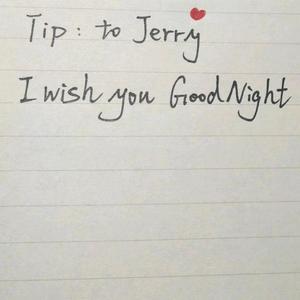 Tip: to Jerry
I wish you Good Night